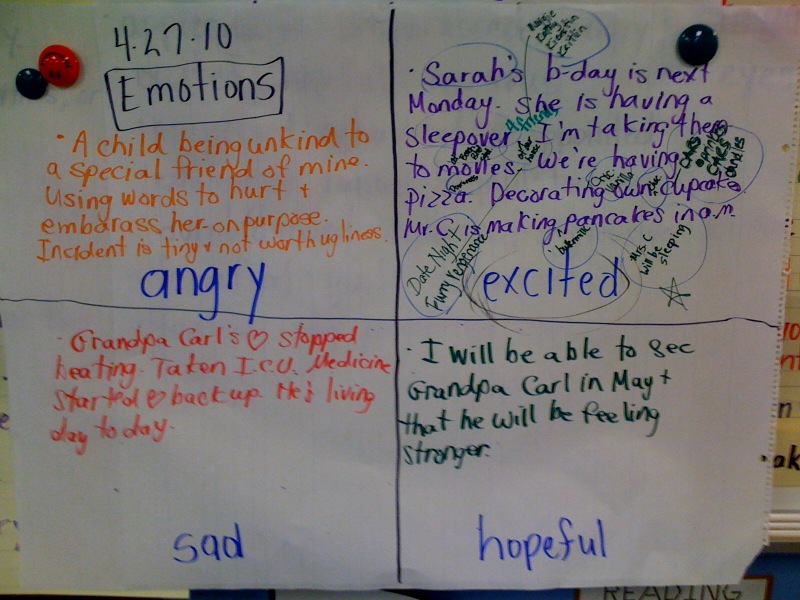 4.27.10
Emotions
· A child being unkind to
a special friend of mine.
Using words to hurt +
embarass her on purpose.
Incident is tiny + not worth ugliness.
angry
· Sarah's b-day is next
Monday. She is having a
sleepover. I'm taking them
to movies. We're having
pizza. Decorating own cupcake.
Mr. C is making pancakes in a.m.
4 friends
Date Night
Mrs. C
will be
sleeping
excited
· Grandpa Carl's ♡ stopped
beating. Taken I.C.U. Medicine
started ♡ back up. He's living
day to day.
sad
· I will be able to see
Grandpa Carl in May +
that he will be feeling
stronger.
hopeful
READING